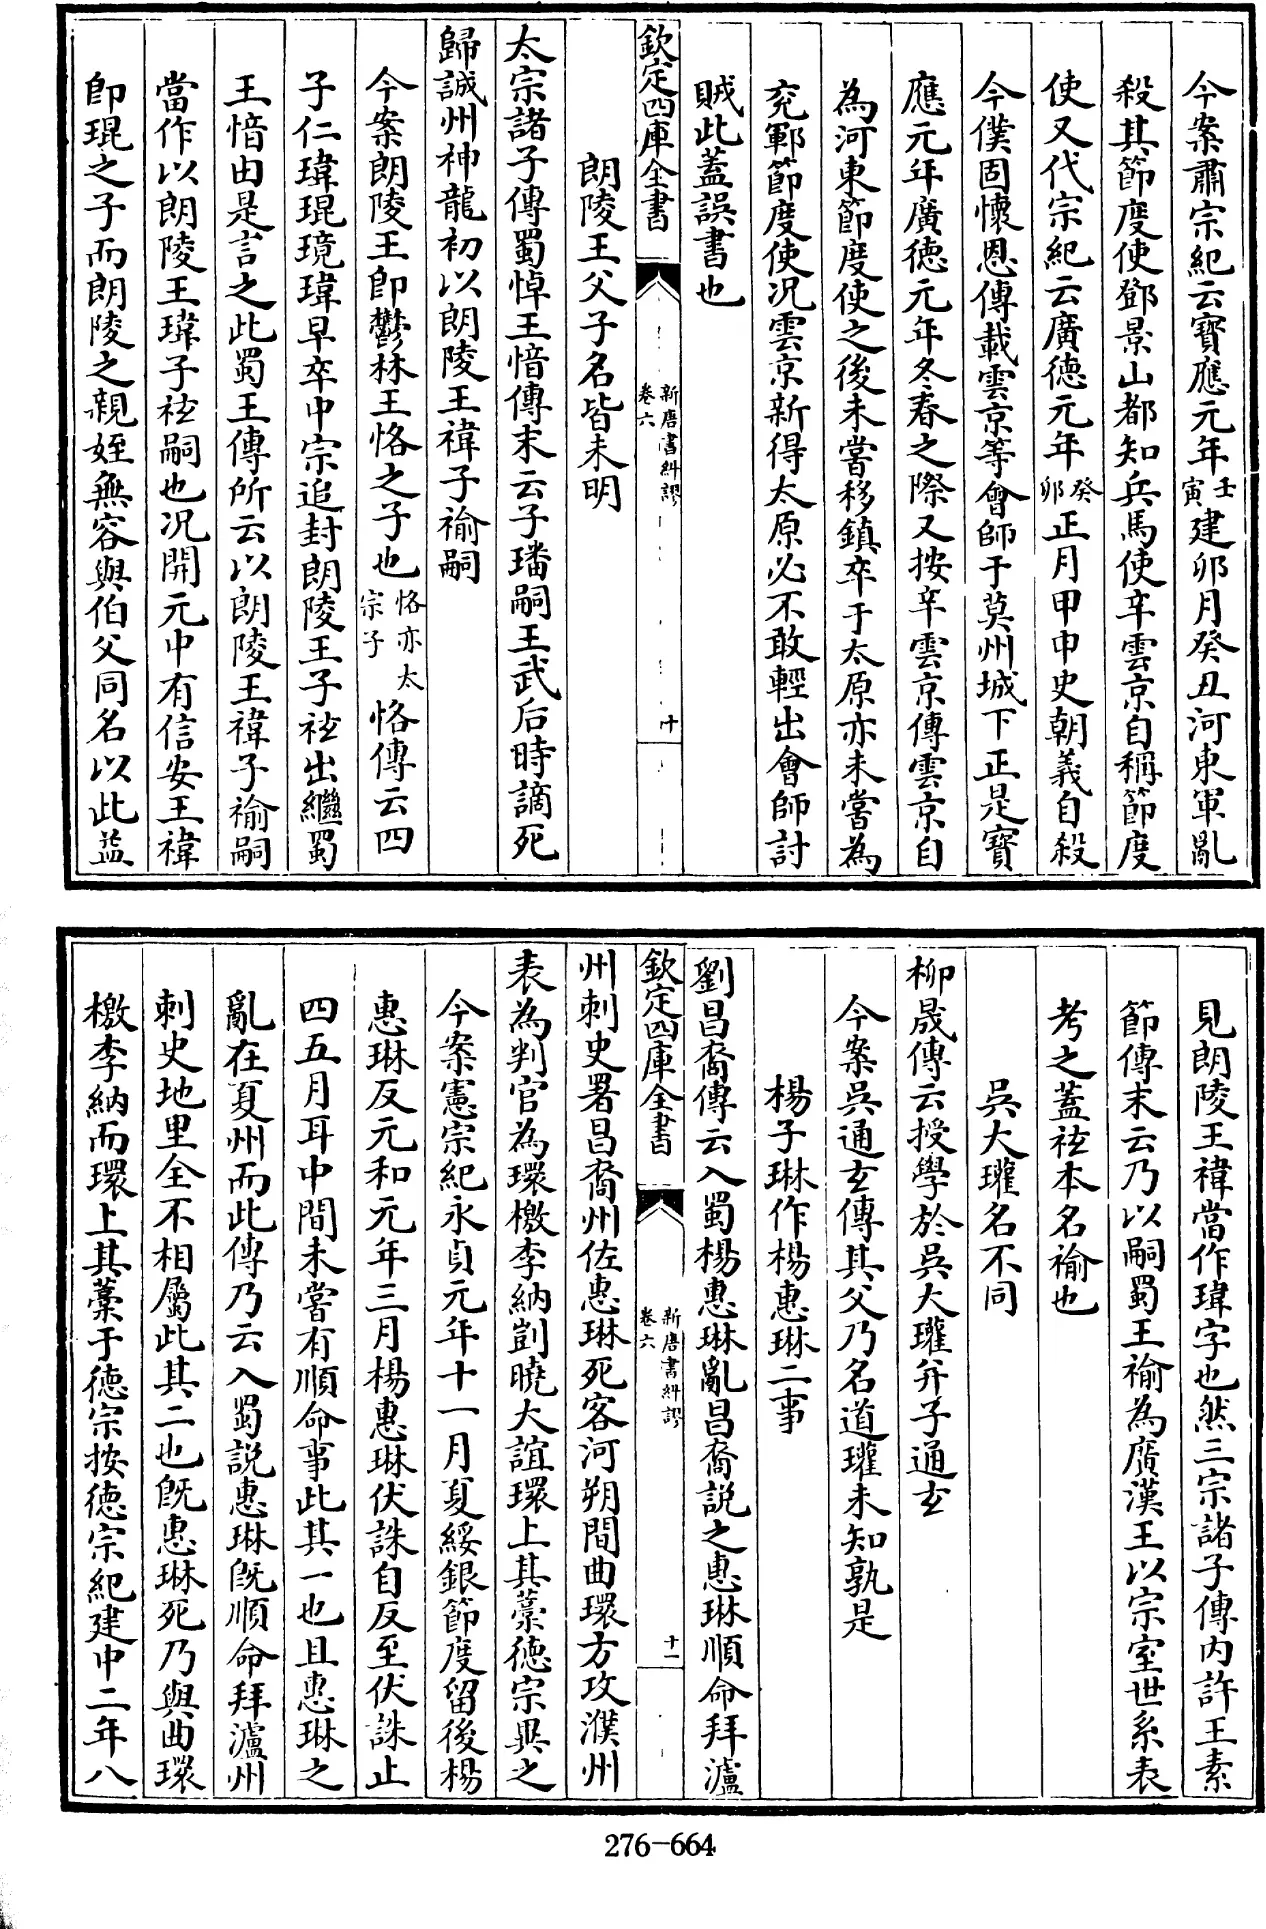 今案肅宗紀云寶應元年壬寅建卯月癸丑河東軍亂
殺其節度使鄧景山都知兵馬使辛雲京自稱節度
使又代宗紀云廣德元年癸卯正月甲申史朝義自殺
今僕固懷恩傳載雲京等會師于莫州城下正是寶
應元年廣德元年冬春之際又按辛雲京傳雲京自
為河東節度使之後未嘗移鎮卒于太原亦未嘗為
兖鄆節度使况雲京新得太原必不敢輕出會師討
賊此蓋誤書也
欽定四庫全書
新唐書糾謬
卷六
十
朗陵王父子名皆未明
太宗諸子傳蜀悼王愔傳末云子璠嗣王武后時謫死
歸誠州神龍初以朗陵王禕子褕嗣
今案朗陵王即鬱林王恪之子也恪亦太宗子恪傳云四
子仁瑋琨璄瑋早卒中宗追封朗陵王子祛出繼蜀
王愔由是言之此蜀王傳所云以朗陵王禕子褕嗣
當作以朗陵王瑋子祛嗣也况開元中有信安王禕
即琨之子而朗陵之親姪無容與伯父同名以此益
見朗陵王禕當作瑋字也然三宗諸子傳内許王素
節傳末云乃以嗣蜀王褕為廣漢王以宗室世系表
考之蓋祛本名褕也
吳大瓘名不同
柳晟傳云授學於吳大瓘并子通玄
今案吳通玄傳其父乃名道瓘未知孰是
楊子琳作楊惠琳二事
劉昌裔傳云入蜀楊惠琳亂昌裔説之惠琳順命拜瀘
欽定四庫全書
新唐書糾謬
卷六
十一
州刺史署昌裔州佐惠琳死客河朔間曲環方攻濮州
表為判官為環檄李納剴曉大誼環上其藁德宗異之
今案憲宗紀永貞元年十一月夏綏銀節度留後楊
惠琳反元和元年三月楊惠琳伏誅自反至伏誅止
四五月耳中間未嘗有順命事此其一也且惠琳之
亂在夏州而此傳乃云入蜀説惠琳既順命拜瀘州
刺史地里全不相屬此其二也既惠琳死乃與曲環
檄李納而環上其藁于德宗按德宗紀建中二年八
276-664